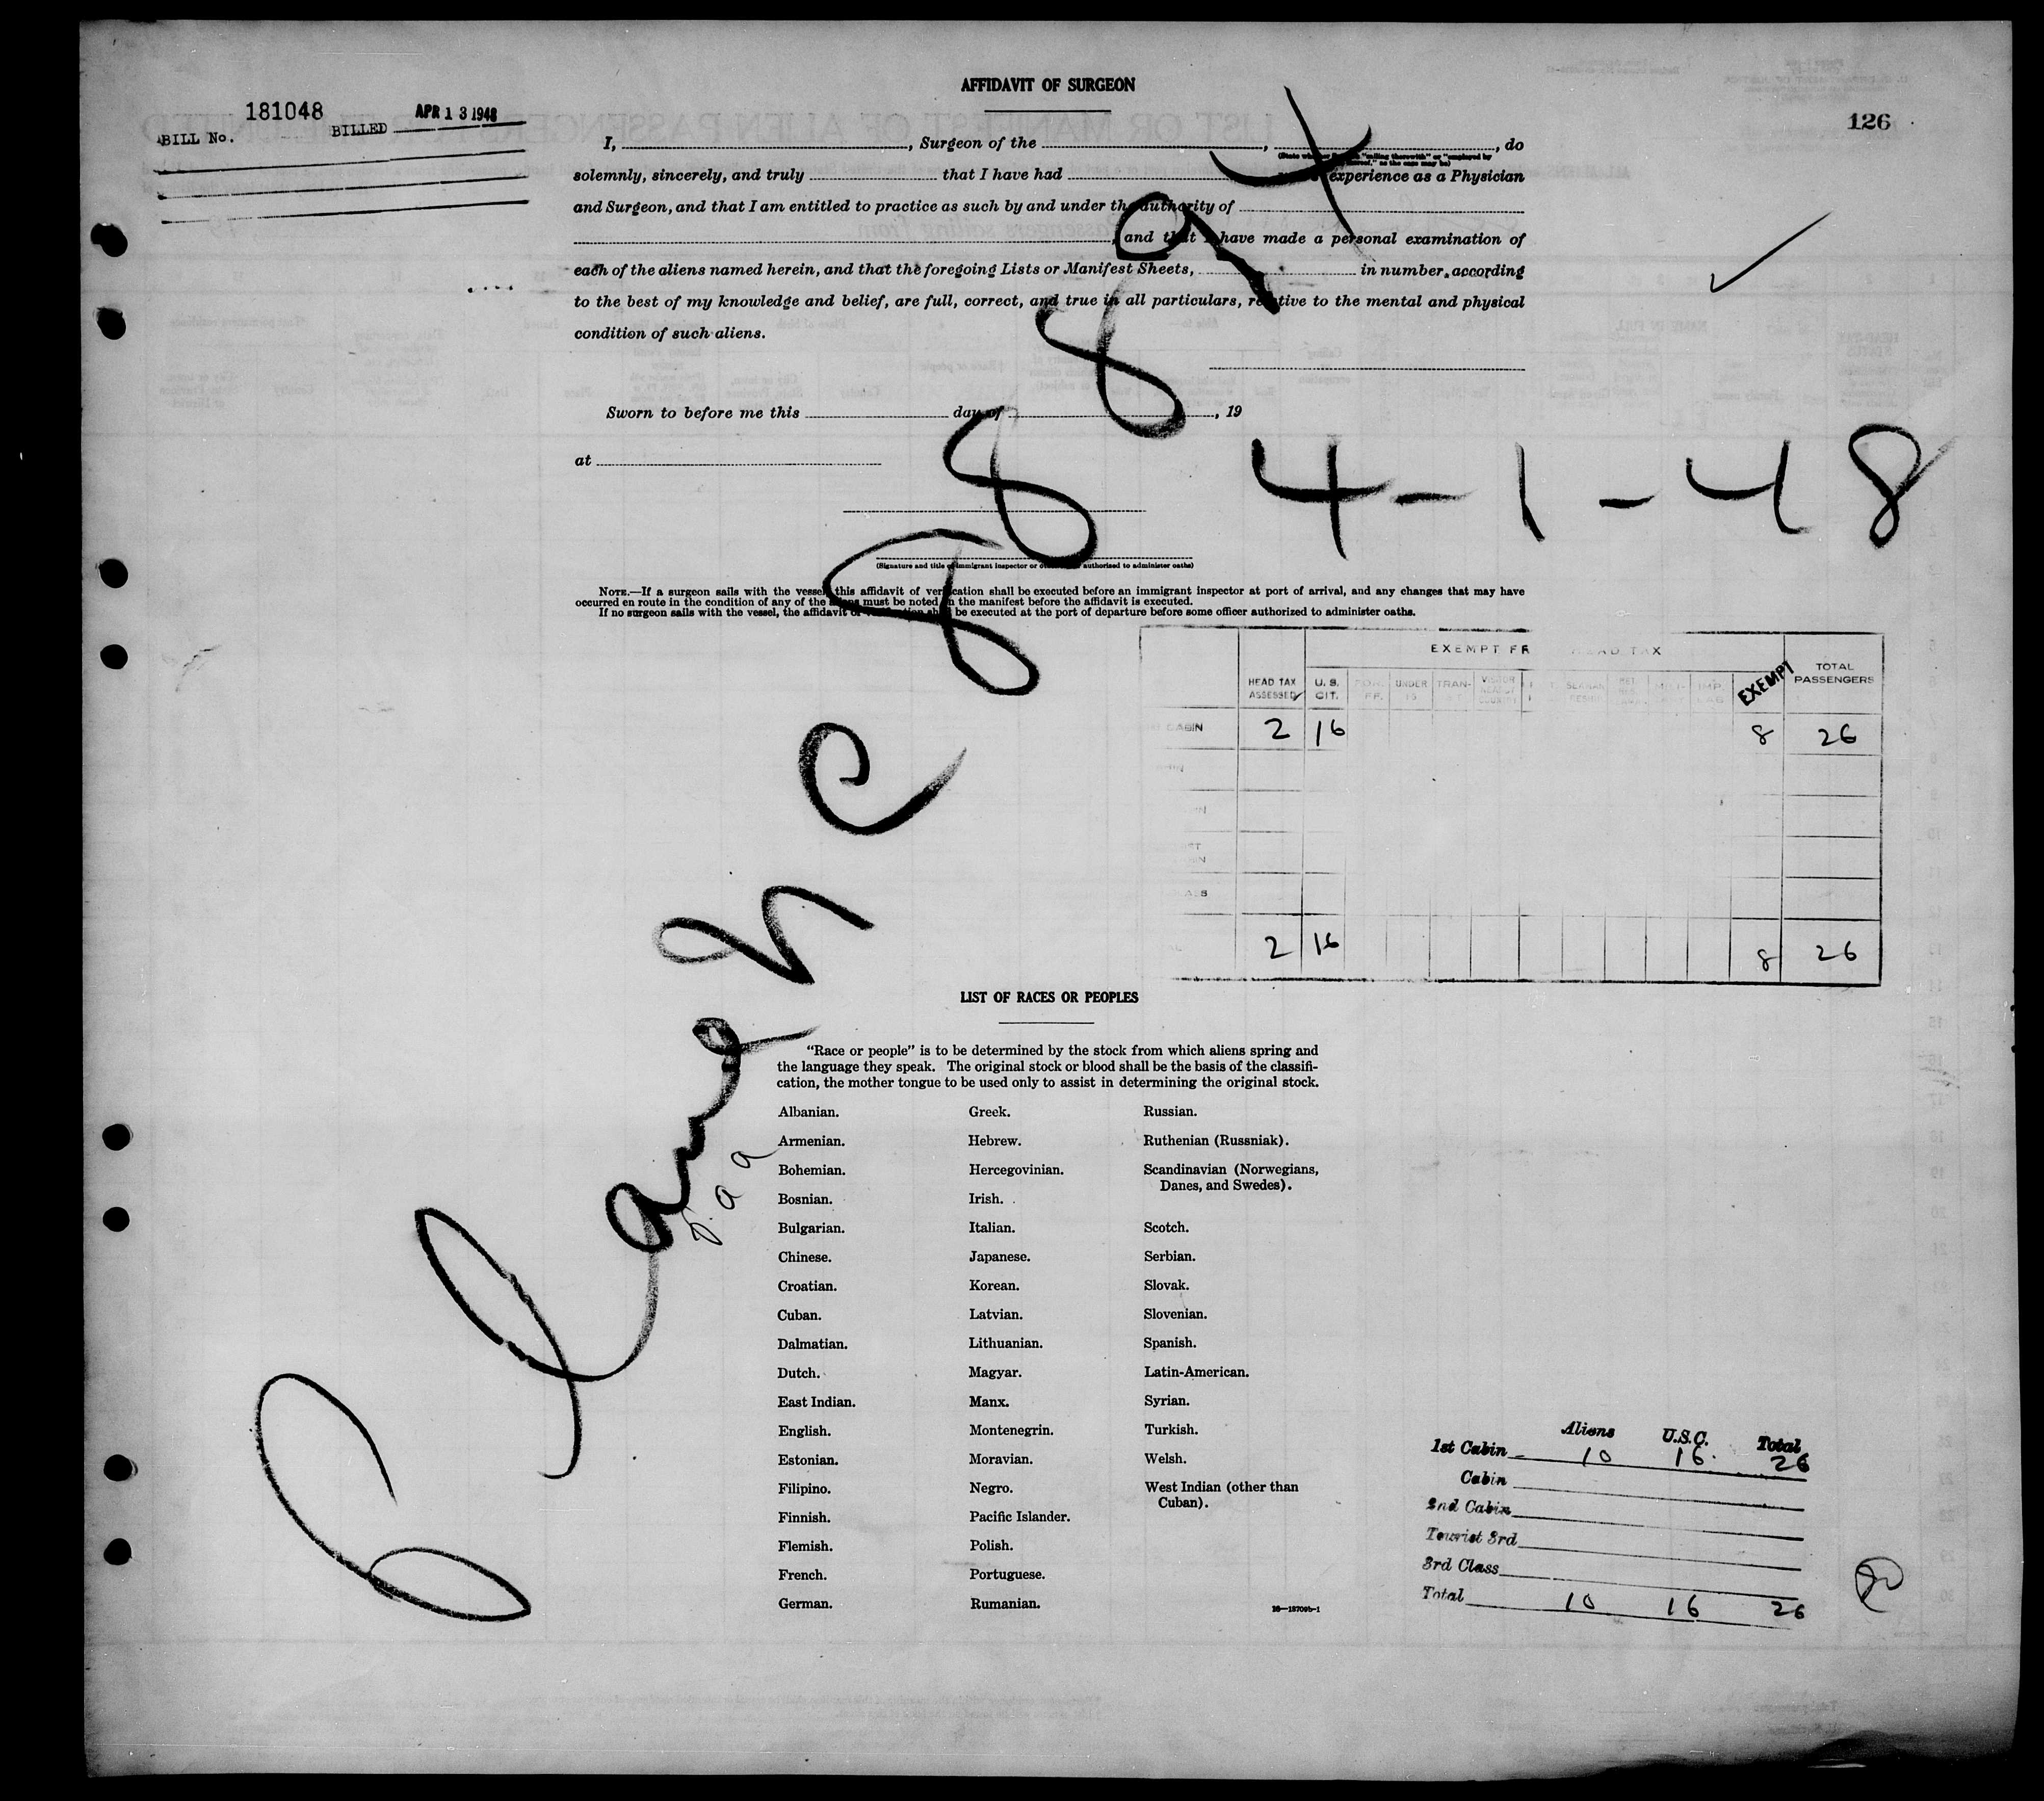 AFFIDAVIT OF SURGEON
181048
BILL No. BILLED APR 13 1948
126
I, , Surgeon of the , , do
solemnly, sincerely, and truly that I have had experience as a Physician
and Surgeon, and that I am entitled to practice as such by and under the authority of
, and that I have made a personal examination of
each of the aliens named herein, and that the foregoing Lists or Manifest Sheets, in number, according
to the best of my knowledge and belief, are full, correct, and true in all particulars, relative to the mental and physical
condition of such aliens.
Sworn to before me this day of , 19
at
(Signature and title of immigrant inspector or other authorized to administer oaths)
Plane NC 88894
4-1-48
P.a.a
NOTE.—If a surgeon sails with the vessel, this affidavit of verification shall be executed before an immigrant inspector at port of arrival, and any changes that may have
occurred en route in the condition of any of the aliens must be noted in the manifest before the affidavit is executed.
If no surgeon sails with the vessel, the affidavit of verification shall be executed at the port of departure before some officer authorized to administer oaths.
EXEMPT FR HEAD TAX
HEAD TAX ASSESSED U. S. CIT. UNDER 16 TRAN- EXEMPT TOTAL PASSENGERS
CABIN 2 16 8 26
2 16 8 26
LIST OF RACES OR PEOPLES
"Race or people" is to be determined by the stock from which aliens spring and
the language they speak. The original stock or blood shall be the basis of the classifi-
cation, the mother tongue to be used only to assist in determining the original stock.
Albanian. Greek. Russian.
Armenian. Hebrew. Ruthenian (Russniak).
Bohemian. Hercegovinian. Scandinavian (Norwegians,
Danes, and Swedes).
Bosnian. Irish.
Bulgarian. Italian. Scotch.
Chinese. Japanese. Serbian.
Croatian. Korean. Slovak.
Cuban. Latvian. Slovenian.
Dalmatian. Lithuanian. Spanish.
Dutch. Magyar. Latin-American.
East Indian. Manx. Syrian.
English. Montenegrin. Turkish.
Estonian. Moravian. Welsh.
Filipino. Negro. West Indian (other than
Cuban).
Finnish. Pacific Islander.
Flemish. Polish.
French. Portuguese.
German. Rumanian.
16—18709b-1
Aliens U.S.C. Total
1st Cabin 10 16 26
Cabin
2nd Cabin
Tourist 3rd
3rd Class
Total 10 16 26